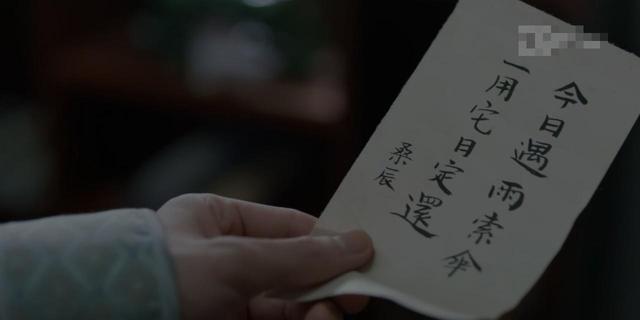 今日遇雨索伞
一用宅日定還
桑辰